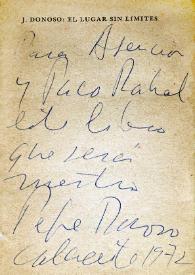 J. DONOSO: EL LUGAR SIN LIMITES
Para Asunción
y Paco Rabal
este libro
que será
nuestro
Pepe Donoso
Calaceite 1972